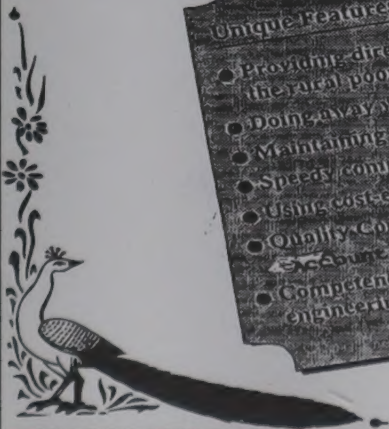 Unique Feature
Providing dire
the rural poo
Doing away
Maintaining
Speedy cont
Using cost-
Quality Co
Competen
engineeri